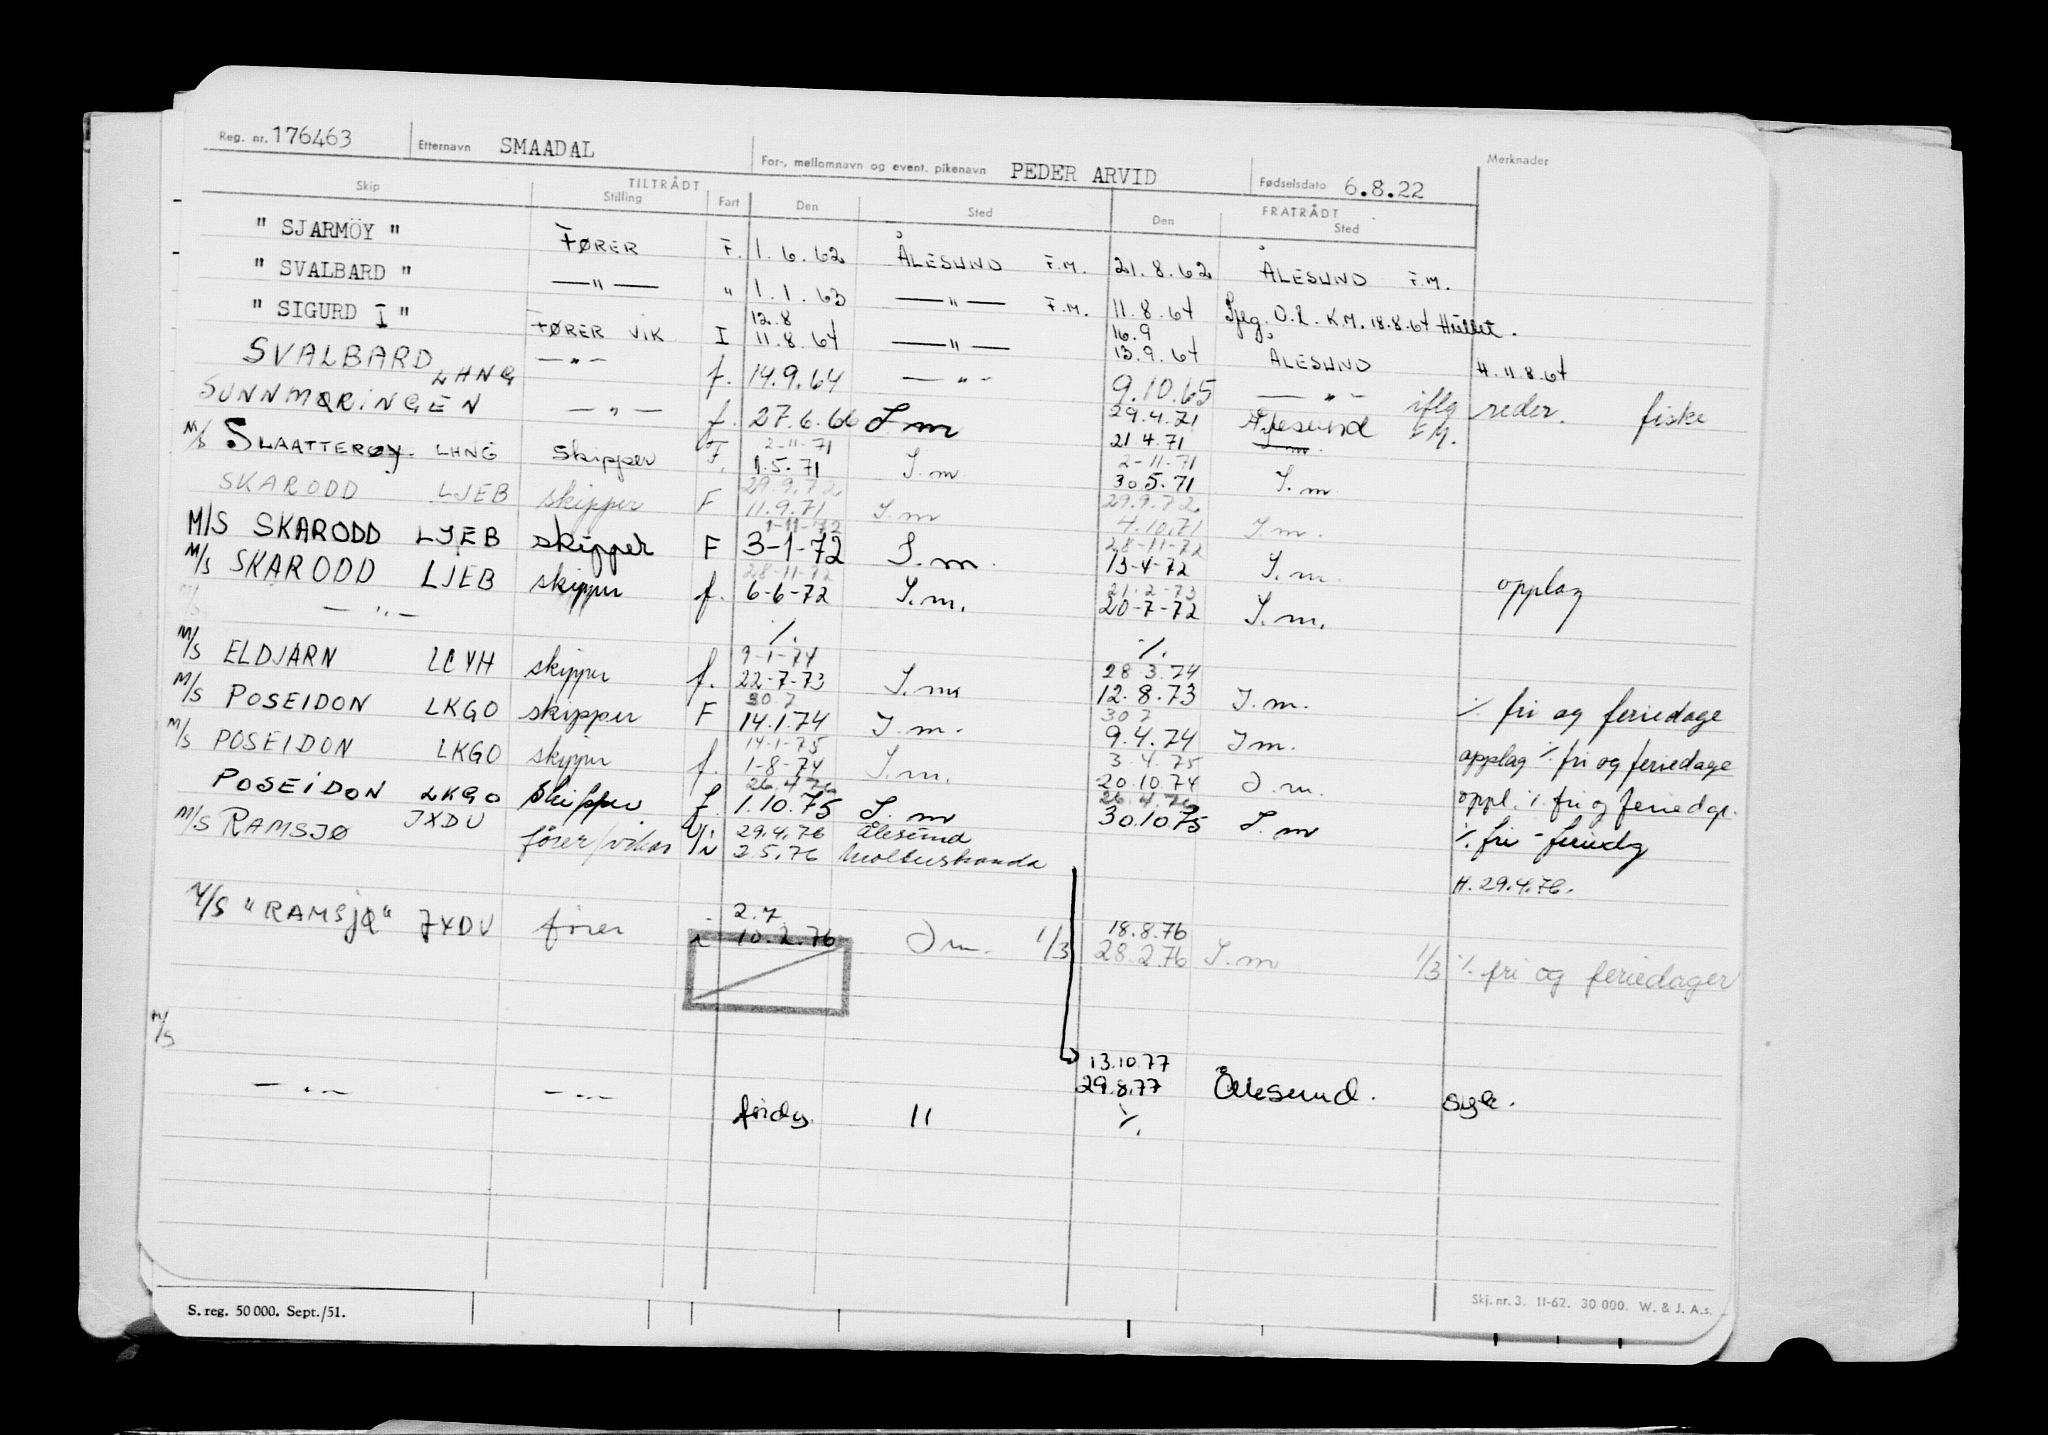 Reg. nr. 176463 Etternavn SMAADAL For-, mellomnavn og event. pikenavn PEDER ARVID Fødselsdato 6.8.22 Merknader
TILTRÅDT FRATRÅDT
Skip Stilling Fart Den Sted Den Sted
" SJARMÖY " FØRER F. 1.6.62 ÅLESUND F.M. 21.8.62 ÅLESUND F.M.
" SVALBARD " —"— " 1.1.63 —"— F.M. 11.8.64 O.L. K.M. 18.8.64
12.8 16.9
" SIGURD I " FØRER VIK I 11.8.64 —"— 13.9.64 ÅLESUND H. 11.8.64
SVALBARD LHNG —"— f. 14.9.64 —"— 9.10.65 —"— iflg reder. fiske
SUNNMØRINGEN —"— f. 27.6.66 S.m 29.4.71 Ålesund F.M.
2-11-71 21.4.71 S.m.
M/S SLAATTERØY LHNG skipper F. 1.5.71 S.m 2-11-71
30.5.71 S.m
29.9.72 29.9.72
SKARODD LJEB skipper F 11.9.71 S.m 4.10.71 S.m.
1-11-72 28-11-72
M/S SKARODD LJEB skipper F 3-1-72 S.m. 13-4-72 S.m.
28-11-72 21.2-73
M/S SKARODD LJEB skipper f. 6-6-72 S.m. 20-7-72 S.m. opplag
M/S —"— ·/. ·/.
9-1-74 28.3.74
M/S ELDJARN LCYH skipper f. 22-7-73 S.m. 12.8.73 S.m. ·/. fri og feriedage
30.7 30.7
M/S POSEIDON LKGO skipper F 14.1.74 S.m. 9.4.74 S.m. opplag ·/. fri og feriedage
14-1-75 3.4.75
M/S POSEIDON LKGO skipper f. 1-8-74 S.m. 20.10.74 S.m. oppl. ·/. fri og feriedgr.
26.4.76 26.4.76
POSEIDON LKGO skipper f. 1.10.75 S.m 30.10.75 S.m ·/. fri - feriedg
M/S RAMSJØ JXDU fører/vikar U/i 29.4.76 Ålesund
2.5.76 H. 29.4.76.
2.7 18.8.76
M/S "RAMSJØ" JXDU fører i 10.2.76 S.m. 1/3 28.2.76 S.m 1/3 ·/. fri og feriedager
M/S
13.10.77
—"— —"— 29.8.77 Ålesund. syk.
fridg. 11 ·/.
S. reg. 50 000. Sept./51. Skj. nr. 3. 11-62. 30 000. W. & J. A.s.